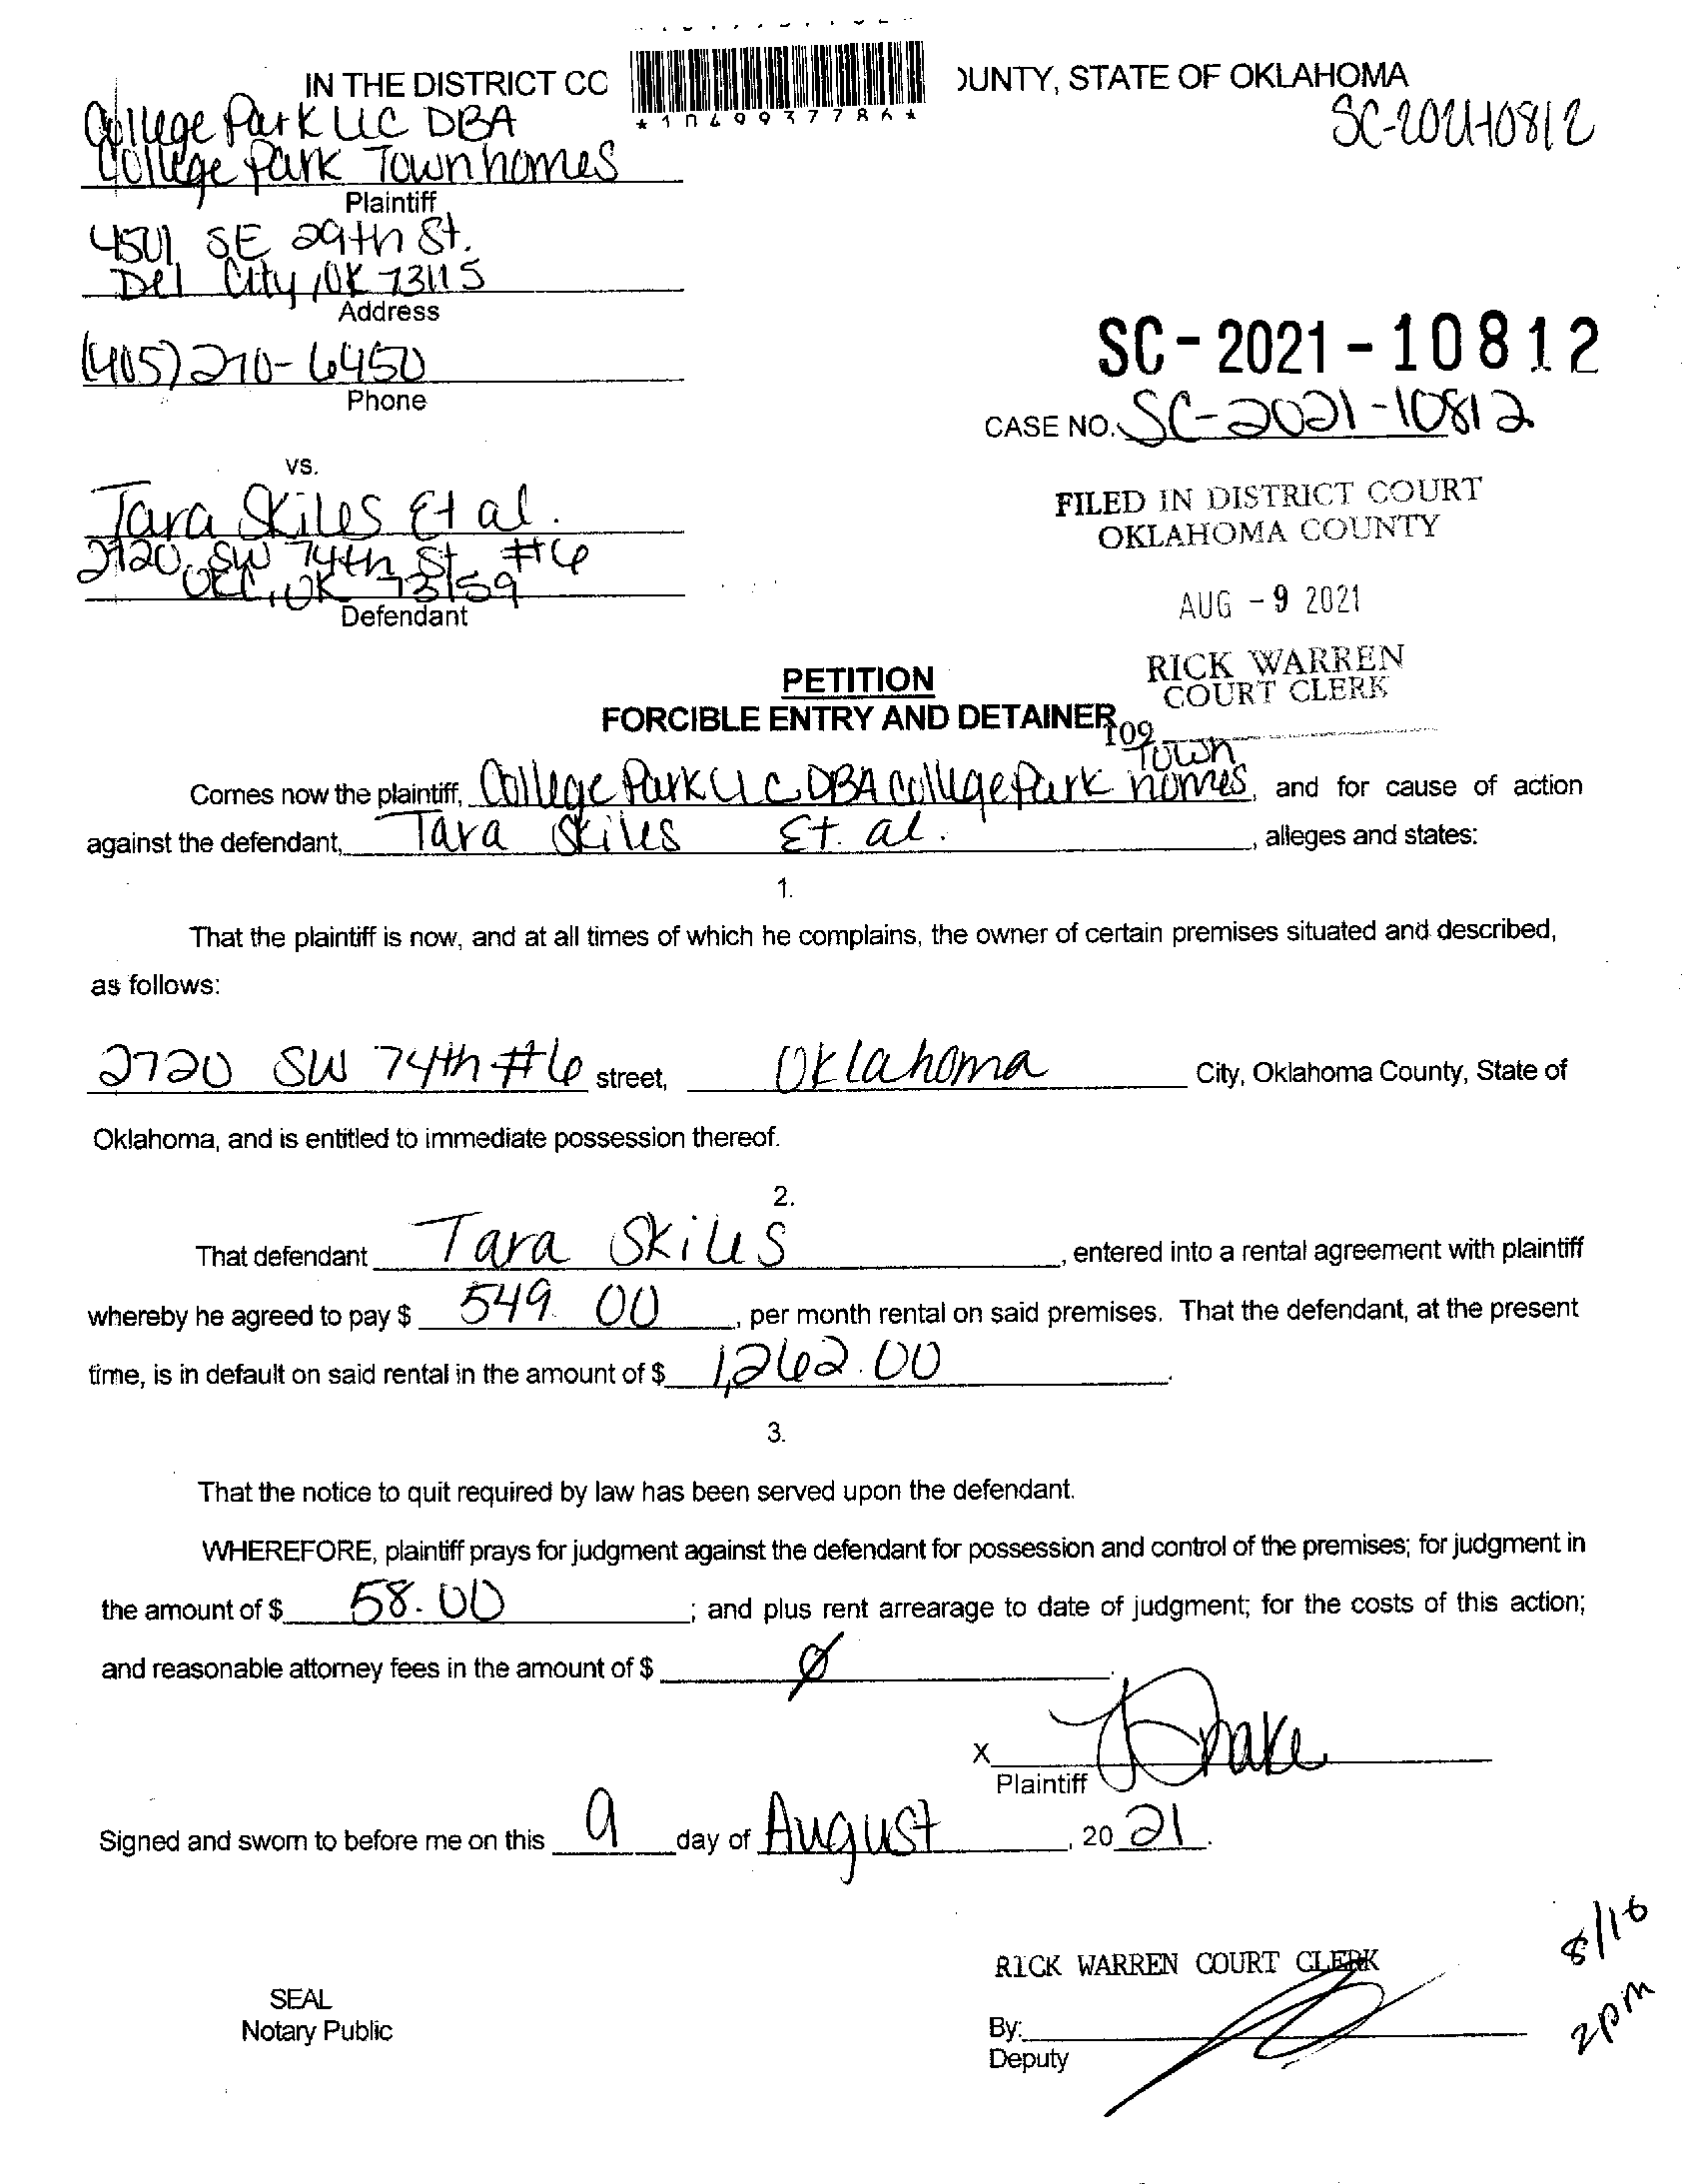 IN THE DISTRICT CO OUNTY, STATE OF OKLAHOMA
*1049937786*
SC-2021-10812
College Park LLC DBA
College Park Townhomes
Plaintiff
4501 SE 29th St.
Del City, OK 73115
Address
(405) 270-6450
Phone
SC-2021-10812
CASE NO. SC-2021-10812
vs.
Tara Skiles Et al.
2720 SW 74th St #6
OCC, OK 73159
Defendant
FILED IN DISTRICT COURT
OKLAHOMA COUNTY
AUG - 9 2021
RICK WARREN
COURT CLERK
109
PETITION
FORCIBLE ENTRY AND DETAINER
Comes now the plaintiff, College Park LLC DBA College Park Town homes, and for cause of action
against the defendant, Tara Skiles Et. al. , alleges and states:
1.
That the plaintiff is now, and at all times of which he complains, the owner of certain premises situated and described,
as follows:
2720 SW 74th #6 street, Oklahoma City, Oklahoma County, State of
Oklahoma, and is entitled to immediate possession thereof.
2.
That defendant Tara Skiles , entered into a rental agreement with plaintiff
whereby he agreed to pay $ 549.00 , per month rental on said premises. That the defendant, at the present
time, is in default on said rental in the amount of $ 1,262.00 .
3.
That the notice to quit required by law has been served upon the defendant.
WHEREFORE, plaintiff prays for judgment against the defendant for possession and control of the premises; for judgment in
the amount of $ 58.00 ; and plus rent arrearage to date of judgment; for the costs of this action;
and reasonable attorney fees in the amount of $ Ø .
X Drake
Plaintiff
Signed and sworn to before me on this 9 day of August , 20 21.
8/16
2pm
RICK WARREN COURT CLERK
SEAL
Notary Public
By:
Deputy